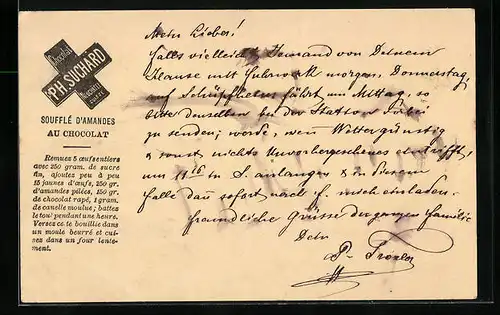 Chocolat
PH. SUCHARD
NEUCHATEL
SUISSE
SOUFFLÉ D'AMANDES
AU CHOCOLAT
Remuez 5 œufs entiers
avec 250 gram. de sucre
fin, ajoutez peu à peu
15 jaunes d'œufs, 250 gr.
d'amandes pilées, 250 gr.
de chocolat rapé, 1 gram.
de canelle moulue; battez
le tout pendant une heure.
Versez cette bouillie dans
un moule beurré et cui-
sez dans un four lente-
ment.
Mein Lieber!
Falls vielleicht Jemand von Deinem
Hause mit Fuhrwerk morgen, Donnerstag,
auf Schüpfheim fährt um Mittag, so
bitte denselben bei der Station vorbei
zu senden; werde, wenn Witter günstig
& sonst nichts Unvorhergesehenes eintrifft,
um 11 in S. anlangen & in diesem
Falle dan sofort nach F. mich einladen.
Freundliche Grüsse der ganzen Familie
Dein
P.